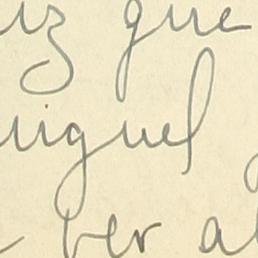 iz que
iguel
ber al